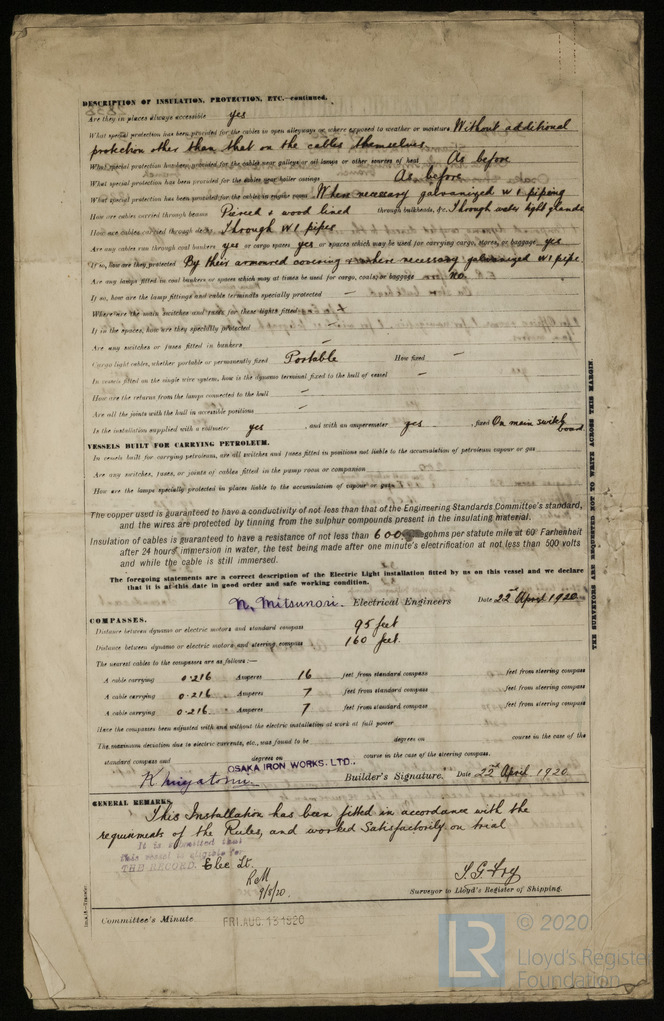 DESCRIPTION OF INSULATION, PROTECTION, ETC.—continued.
Are they in places always accessible yes
What special protection has been provided for the cables in open alleyways or where exposed to weather or moisture Without additional
protection other than that on the cables themselves.
What special protection has been provided for the cables near galleys or oil lamps or other sources of heat As before
What special protection has been provided for the cables near boiler casings As before
What special protection has been provided for the cables in engine room Where necessary galvanized W I piping
How are cables carried through beams Pierced & wood lined through bulkheads, &c. Through water tight glands
How are cables carried through decks Through W I pipes
Are any cables run through coal bunkers yes or cargo spaces yes or spaces which may be used for carrying cargo, stores, or baggage yes
If so, how are they protected By their armoured covering & where necessary galvanized W I pipe
Are any lamps fitted in coal bunkers or spaces which may at times be used for cargo, coals, or baggage No.
If so, how are the lamp fittings and cable terminals specially protected —
Where are the main switches and fuses for these lights fitted
If in the spaces, how are they specially protected —
Are any switches or fuses fitted in bunkers —
Cargo light cables, whether portable or permanently fixed Portable How fixed —
In vessels fitted on the single wire system, how is the dynamo terminal fixed to the hull of vessel —
How are the returns from the lamps connected to the hull —
Are all the joints with the hull in accessible positions —
Is the installation supplied with a voltmeter yes , and with an amperemeter yes , fixed On main switch
board
VESSELS BUILT FOR CARRYING PETROLEUM.
In vessels built for carrying petroleum, are all switches and fuses fitted in positions not liable to the accumulation of petroleum vapour or gas
Are any switches, fuses, or joints of cables fitted in the pump room or companion
How are the lamps specially protected in places liable to the accumulation of vapour or gas
The copper used is guaranteed to have a conductivity of not less than that of the Engineering Standards Committee's standard,
and the wires are protected by tinning from the sulphur compounds present in the insulating material.
Insulation of cables is guaranteed to have a resistance of not less than 600 megohms per statute mile at 60° Farhenheit
after 24 hours' immersion in water, the test being made after one minute's electrification at not less than 500 volts
and while the cable is still immersed.
The foregoing statements are a correct description of the Electric Light installation fitted by us on this vessel and we declare
that it is at this date in good order and safe working condition.
N. Mitsunori. Electrical Engineers Date 22nd April 1920
COMPASSES.
Distance between dynamo or electric motors and standard compass 95 feet
Distance between dynamo or electric motors and steering compass 160 feet.
The nearest cables to the compasses are as follows:—
A cable carrying 0.216 Amperes 16 feet from standard compass feet from steering compass
A cable carrying 0.216 Amperes 7 feet from standard compass feet from steering compass
A cable carrying 0.216 Amperes 7 feet from standard compass feet from steering compass
Have the compasses been adjusted with and without the electric installation at work at full power
The maximum deviation due to electric currents, etc., was found to be degrees on course in the case of the
standard compass and degrees on course in the case of the steering compass.
OSAKA IRON WORKS. LTD.,
Builder's Signature. Date 22nd April 1920.
GENERAL REMARKS.
This Installation has been fitted in accordance with the
requirements of the Rules, and worked Satisfactorily on trial
It is submitted that
this vessel is eligible for
THE RECORD. Elec Lt.
9/8/20.
S. G. Fry
Surveyor to Lloyd's Register of Shipping.
Committee's Minute FRI. AUG. 13 1920
THE SURVEYORS ARE REQUESTED NOT TO WRITE ACROSS THIS MARGIN.
LR
© 2020
Lloyd's Register
Foundation